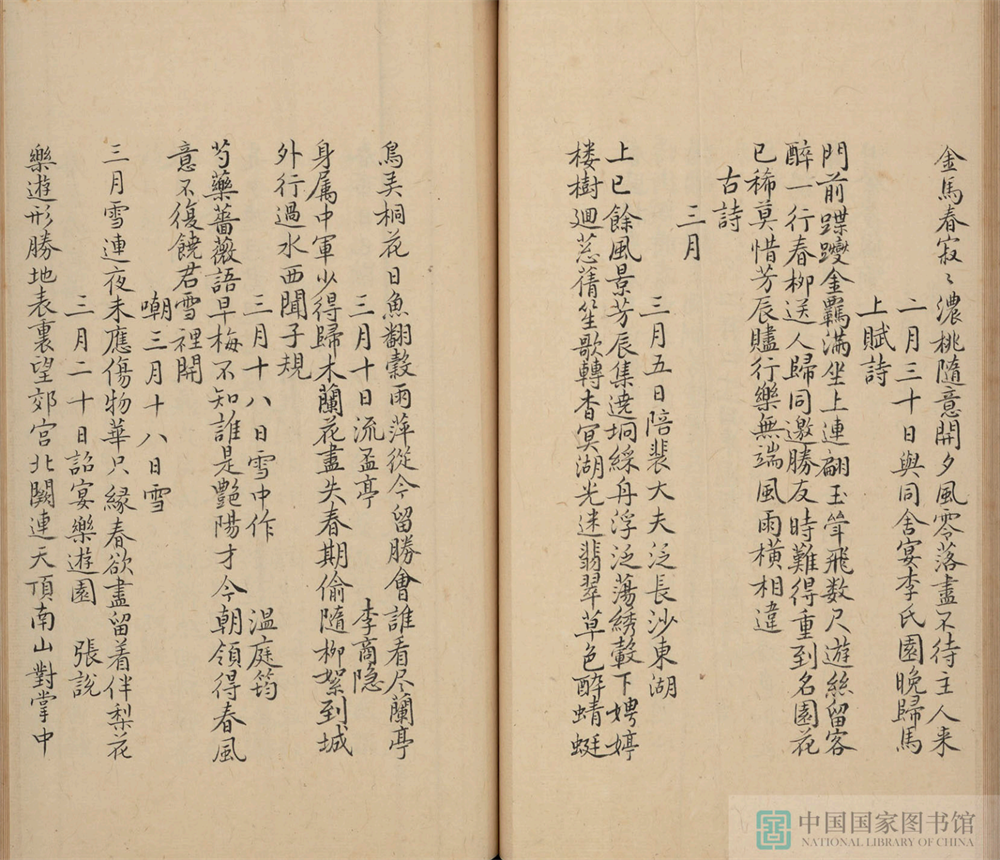 金馬春寂〻濃桃隨意開夕風零落盡不待主人来
二月三十日與同舍宴李氏園晚歸馬
上賦詩
門前蹀躞金羈滿坐上連翩玉斚飛数尺遊絲留客
醉一行春柳送人歸同邀勝友時難得重到名園花
已稀莫惜芳辰贐行樂無端風雨橫相違
古詩
三月
三月五日陪裴大夫泛長沙東湖
上巳餘風景芳辰集遶坰綵舟浮泛蕩綉轂下娉婷
楼樹廻蔥蒨笙歌轉杳冥湖光迷翡翠草色醉蜻蜓
鳥美桐花日魚翻穀雨萍從今留勝會誰看尽蘭亭
三月十日流盃亭 李商隐
身属中軍少得歸木蘭花盡失春期偷隨柳絮到城
外行過水西聞子規
三月十八日雪中作 温庭筠
芍藥薔薇語早梅不知誰是艷陽才今朝領得春風
意不復饒君雪裡開
嘲三月十八日雪
三月雪連夜未應傷物華只緣春欲盡留着伴梨花
三月二十日詔宴樂遊園 張説
樂遊形勝地表裏望郊宫北闕連天頂南山對掌中
中国国家图书馆
NATIONAL LIBRARY OF CHINA